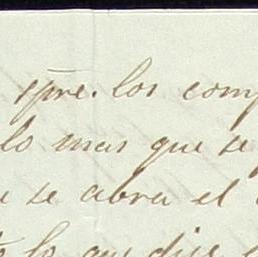 spre. los comp
lo mas que se p
se abra el
lo que dise